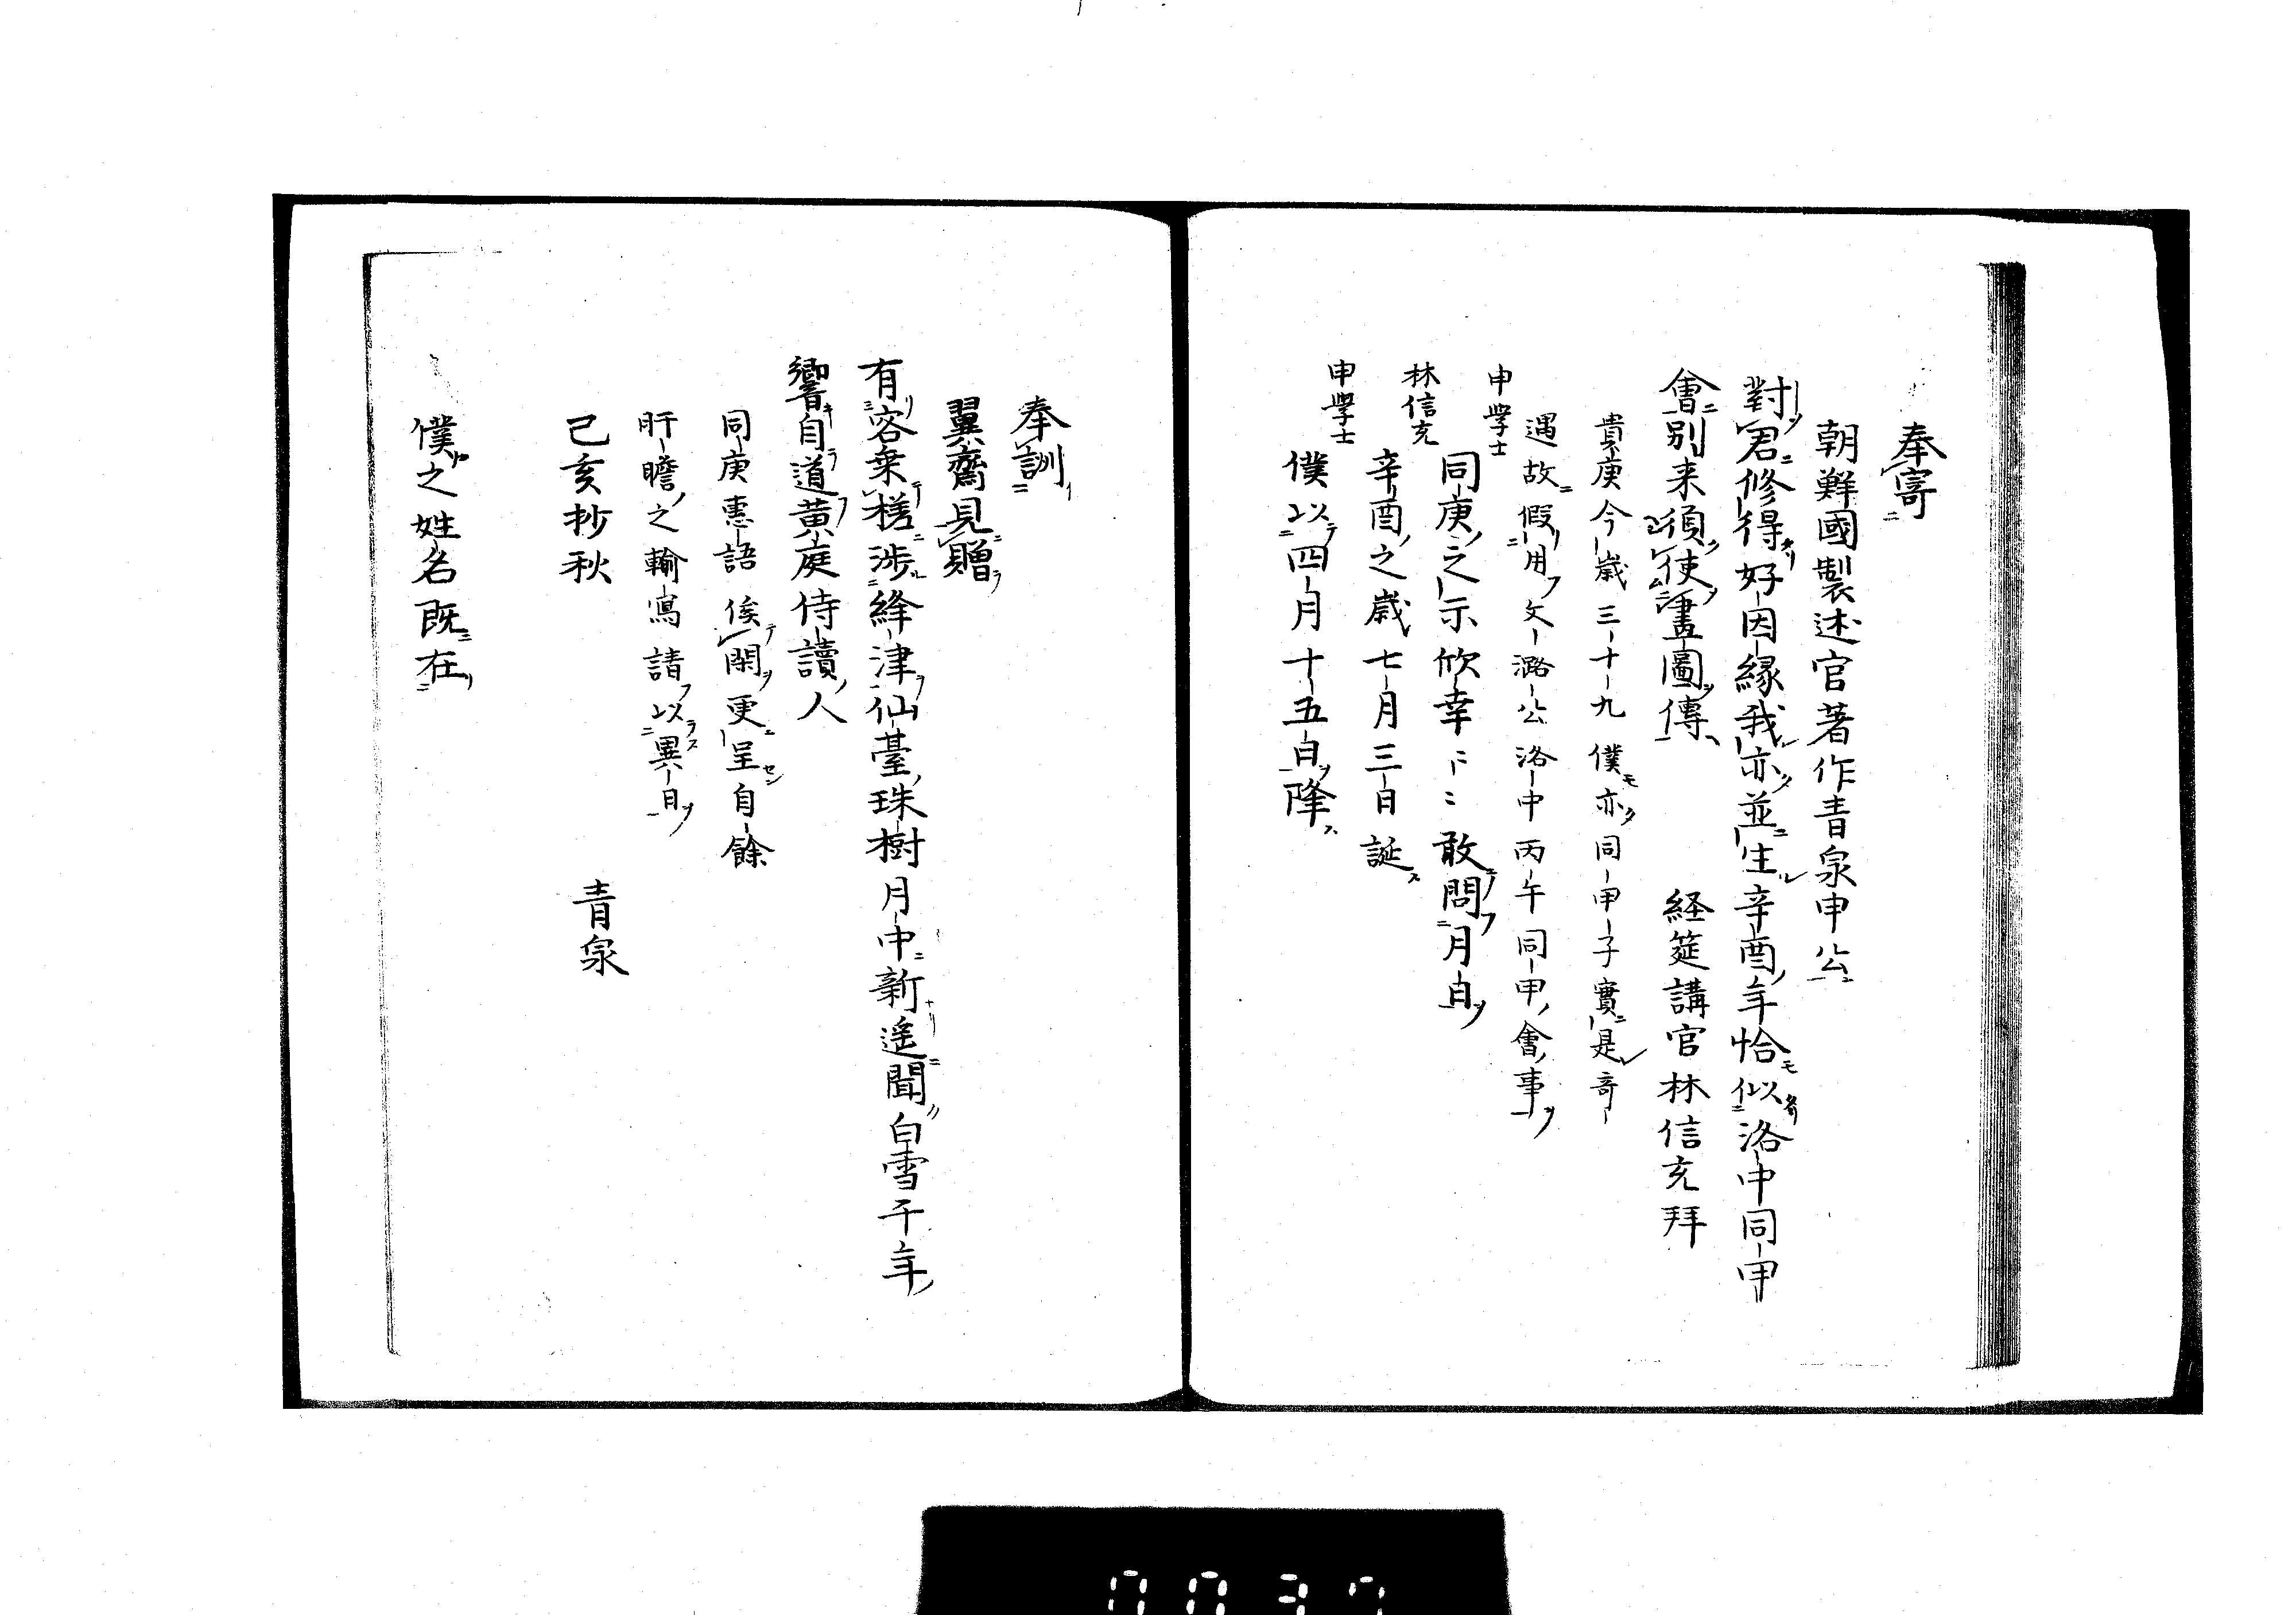 奉寄
朝鮮國製述官著作青泉申公
對君修得好因縁我亦並生辛酉年恰似洛中同甲
會別来須使畫圖傳　　経筵講官林信充拜
貴庚今歳三十九僕亦同甲子實是奇
遇故假用文潞公洛中丙午同甲會事
申學士
同庚之示欣幸〻〻敢問月日
林信充
辛酉之歳七月三日誕
申學士
僕以四月十五日降
奉詶
翼齋見贈
有容乗槎渉絳津仙臺珠樹月中新遥聞白雪千年
響自道黄庭侍讀人
同庚惠語俟閑更呈自餘
肝瞻之輸寫請以異日
己亥抄秋　　青泉
僕之姓名既在
0037